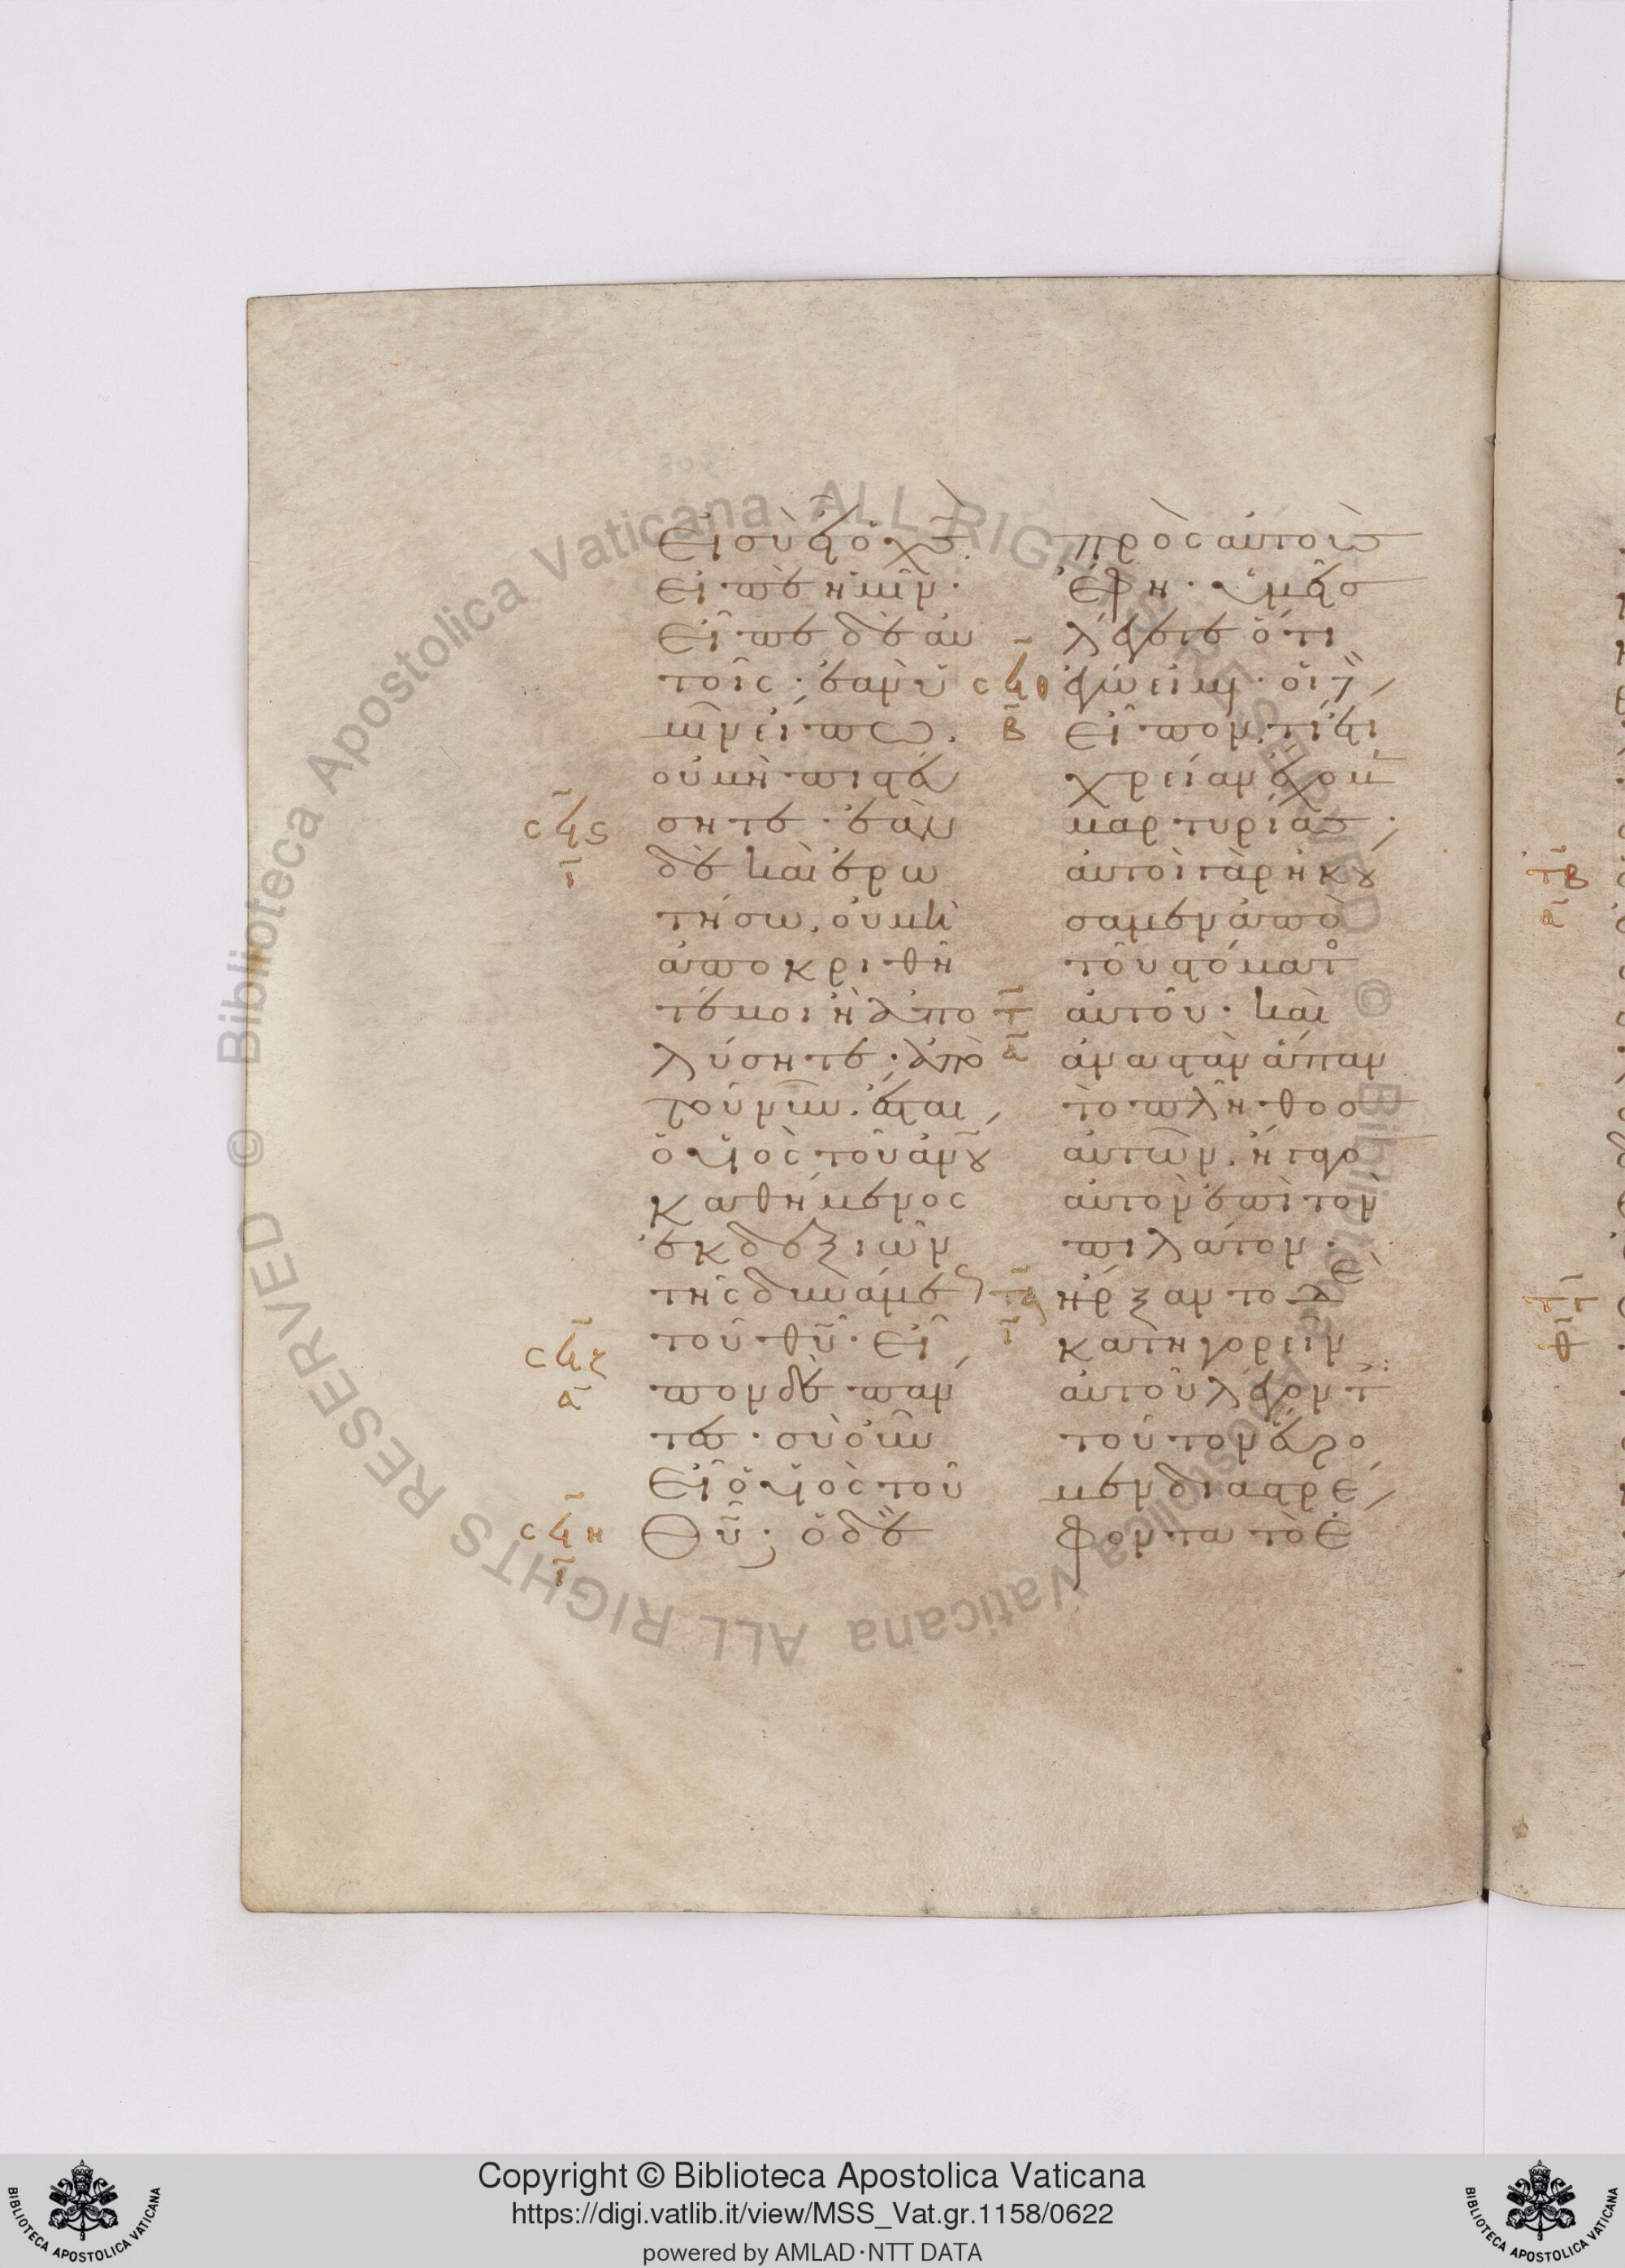 εἰ σὺ εἶ ὁ χ̅ς̅
εἰπὲ ἡμῖν·
εἶπε δὲ αὐ
τοῖς· ἐὰν ὑ
μῖν εἴπω.
οὐ μὴ πιστεύ
σητε· ἐὰν
σϟϛ
ι
δὲ καὶ ἐρω
τήσω, οὐ μὴ
ἀποκριθῆ
τέ μοι ἢ ἀπο
λύσητε· ἀπὸ
τοῦ νῦν. ἔσται
ὁ υἱὸς τοῦ α̅ν̅ο̅υ̅
καθήμενος
ἐκ δεξιῶν
τῆς δυνάμεως
τοῦ θ̅υ̅· εἶ
σϟζ
α
πον δὲ πάν
τες· σὺ οὖν
εἶ ὁ υἱὸς τοῦ
θ̅υ̅; ὁ δὲ
σϟη
ι
πρὸς αὐτοὺς
ἔφη· ὑμεῖς
λέγετε ὅτι
ἐγώ εἰμι· οἱ δὲ
σϟθ
β
εἶπον· τί ἔτι
χρείαν ἔχομεν
μαρτυρίας;
αὐτοὶ γὰρ ἠκού
σαμεν ἀπὸ
τοῦ στόματος
αὐτοῦ· καὶ
τ
α
ἀναστὰν ἅπαν
τὸ πλῆθος
αὐτῶν, ἤγαγον
αὐτὸν ἐπὶ τὸν
πιλάτον·
ἤρξαντο δὲ
τα
ι
κατηγορεῖν
αὐτοῦ λέγοντες
τοῦτον εὕρο
μεν διαστρέ
φοντα τὸ ἔ
τβ
α
Copyright © Biblioteca Apostolica Vaticana
https://digi.vatlib.it/view/MSS_Vat.gr.1158/0622
powered by AMLAD·NTT DATA
BIBLIOTECA APOSTOLICA VATICANA
BIBLIOTECA APOSTOLICA VATICANA
© Biblioteca Apostolica Vaticana ALL RIGHTS RESERVED © Biblioteca Apostolica Vaticana ALL RIGHTS RESERVED